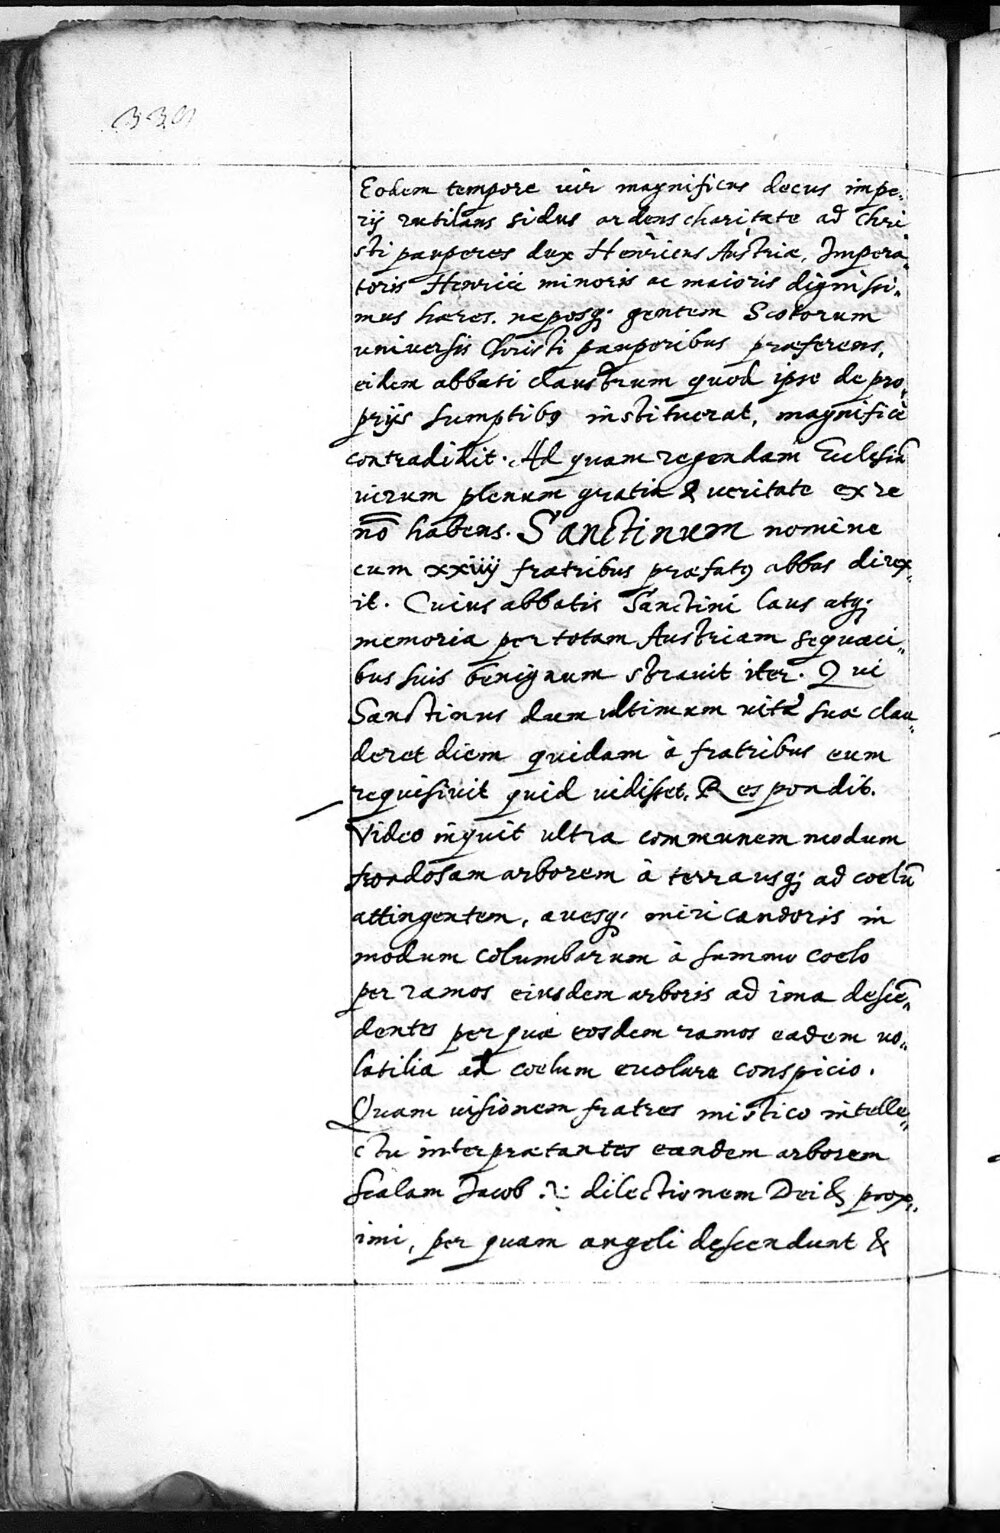 Eodem tempore uir magnificus decus impe„
rij rutilans sidus ardens charitate ad Chri
sti pauperes dux Henricus Austriæ, Impera„
toris Henrici minoris ac maioris dignissi„
mus hæres. neposq; gentem Scotorum
universis Christi pauperibus præferens,
eidem abbati claustrum quod ipse de pro„
prijs sumptibꝰ instituerat, magnificè
contradidit. Ad quam regendam Ecclesiā
uirum plenum gratia & ueritate ex re
nō habens. Sanctinum nomine
cum xxiiij fratribus præfatꝰ abbas direx„
it. Cuius abbatis Sanctini laus atq;
memoria per totam Austriam sequaci„
bus suis benignum strauit iter. Qui
Sanctinus dum ultimum uitæ suæ clau„
deret diem quidam à fratribus eum
requisiuit quid uidisset. Respondit.
Video inquit ultra communem modum
frondosam arborem à terra usq; ad coelū
attingentem, auesq; miri candoris in
modum columbarum à summo coelo
per ramos eiusdem arboris ad ima descē„
dentes per quæ eosdem ramos eadem uo„
latilia ad coelum euolare conspicio.
Quam uisionem fratres mistico intelle„
ctu interprætantes eandem arborem
Scalam Jacob .i. dilectionem Dei & prox„
imi, per quam angeli descendunt &